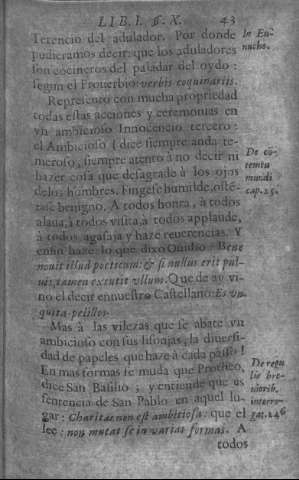 LIB. I. §. X. 43
Terencio del adulador. Por donde
pudieramos decir: que los aduladores
son cocineros del paladar del oydo:
segun el Prouerbio: verbis coquinariis.
Representò con mucha propriedad
todas estas acciones y ceremonias en
vn ambicioso Innocencio tercero:
el Ambicioso (dice siempre anda te-
meroso, siempre atento à no decir ni
hazer cosa que desagrade à los ojos
de los hombres. Fingese humilde, osté-
tase benigno. A todos honra, à todos
alaua, à todos visita, à todos applaude,
à todos agasaja y haze reuerencias. Y
enfin haze lo que dixo Ouidio: Bene
nouit illud poeticum: & si nullus erit pul-
uis, tamen excutit vllum. Que de ay vi-
no el decir en nuestro Castellano: Es vn
quita pelillos.
Mas à las vilezas que se abate vn
ambicioso con sus lisonjas, la diuersi-
dad de papeles que haze à cada passo!
En mas formas se muda que Protheo,
dice San Basilio; y entiende que es
sentencia de San Pablo en aquel lu-
gar: Charitas non est ambitiosa: que el
lee: non mutat se in varias formas. A
todos
In Eu-
nucho.
De có-
temtu
mundi
cap. 25.
De regu
lis bre-
uiorib.
interro-
gat. 246